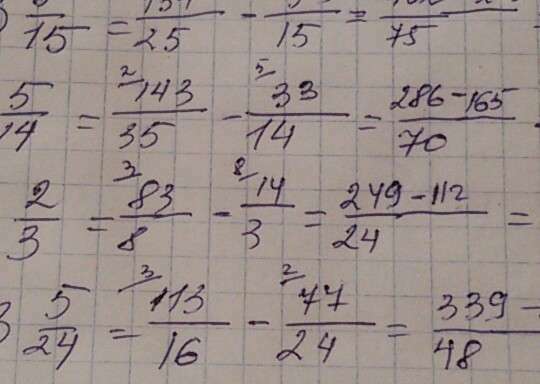 /15 = /25 - /15 = /75
5/14 = ²143/35 - ⁵33/14 = 286-165/70
2/3 = ³83/8 - ⁸14/3 = 249-112/24 =
3 5/24 = ³113/16 - ²77/24 = 339-/48